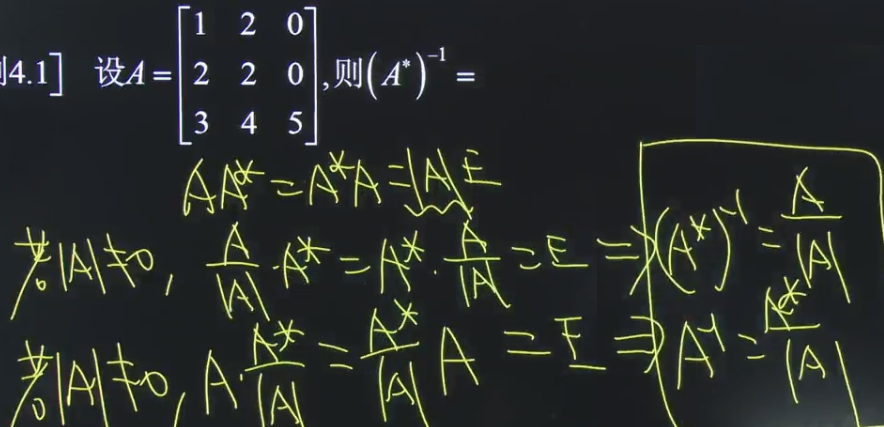 例4.1] 设A = [1 2 0; 2 2 0; 3 4 5], 则(A*)⁻¹ =
AA* = A*A = |A|E
若|A|≠0, A/|A| · A* = A* · A/|A| = E ⇒ (A*)⁻¹ = A/|A|
若|A|≠0, A · A*/|A| = A*/|A| A = E ⇒ A⁻¹ = A*/|A|